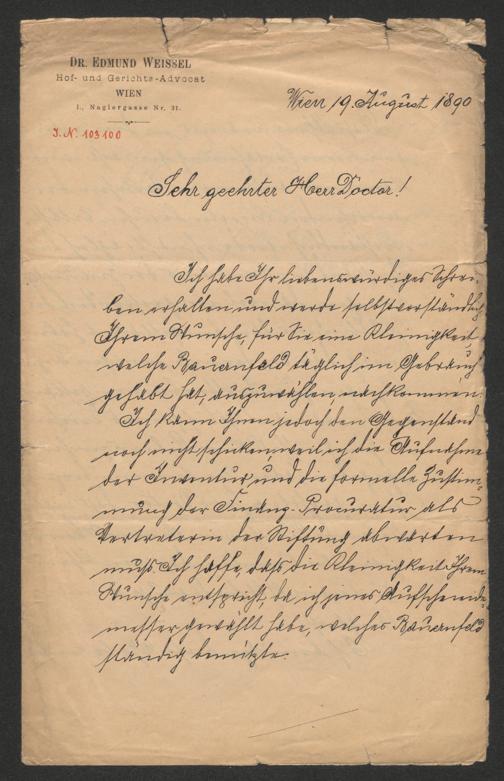 DR. EDMUND WEISSEL
Hof- und Gerichts-Advocat
WIEN
I., Naglergasse Nr. 31.
J. N. 103100
Wien 19. August 1890
Sehr geehrter Herr Doctor!
Ich habe Ihr liebenswürdiges Schrei-
ben erhalten und werde selbstverständlich
Ihrem Wunsche, für Sie eine Kleinigkeit,
welche Bauernfeld täglich im Gebrauch
gehabt hat, auszuwählen, nachkommen.
Ich kann Ihnen jedoch den Gegenstand
noch nicht schicken, weil ich die Aufnahme
der Inventur, und die formelle Zustim-
mung der Finanz-Procuratur als
Vertreterin der Stiftung abwarten
muß. Ich hoffe, daß die Kleinigkeit Ihrem
Wunsche entspricht, da ich jenes Aufschneide-
messer gewählt habe, welches Bauernfeld
ständig benützte.